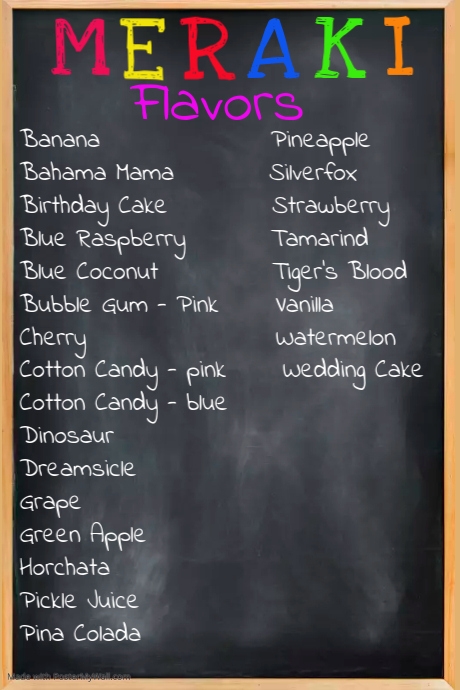 MERAKI
Flavors
Banana
Bahama Mama
Birthday Cake
Blue Raspberry
Blue Coconut
Bubble Gum - Pink
Cherry
Cotton Candy - pink
Cotton Candy - blue
Dinosaur
Dreamsicle
Grape
Green Apple
Horchata
Pickle Juice
Pina Colada
Pineapple
Silverfox
Strawberry
Tamarind
Tiger's Blood
Vanilla
Watermelon
Wedding Cake
Made with PosterMyWall.com